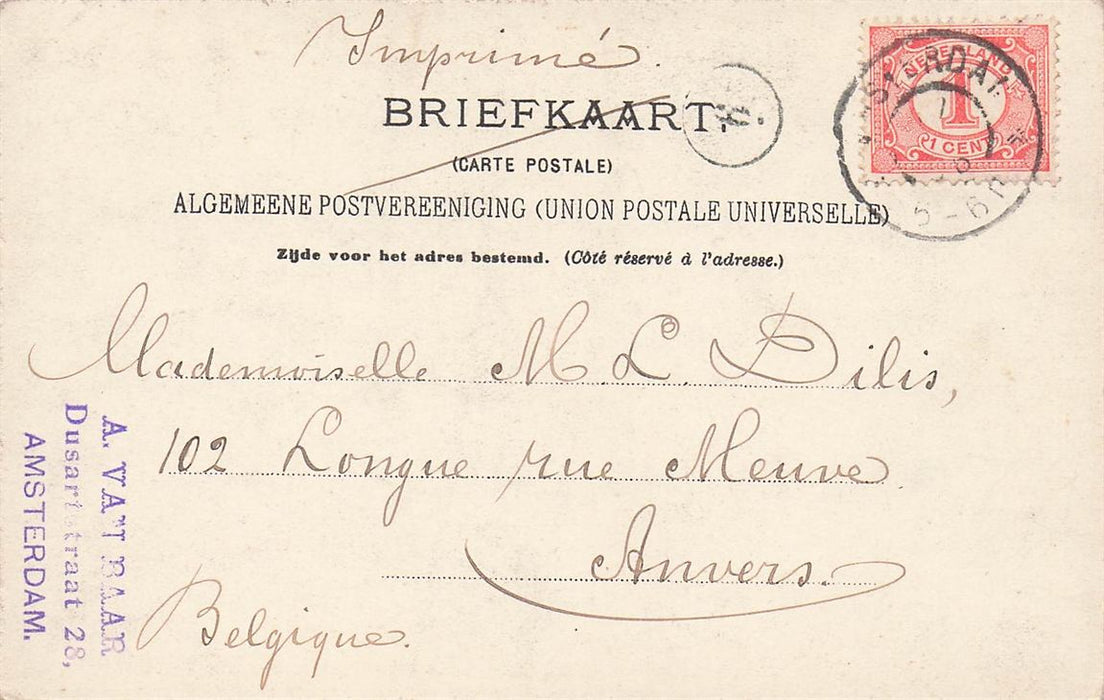 Imprimé.
BRIEFKAART.
(CARTE POSTALE)
ALGEMEENE POSTVEREENIGING (UNION POSTALE UNIVERSELLE)
Zijde voor het adres bestemd. (Côté réservé à l'adresse.)
NEDERLAND
1
1 CENT
5-6N
Mademoiselle M. L. Dilis,
102 Longue rue Neuve
Anvers.
Belgique.
A. VAN BAAR
Dusartstraat 28,
AMSTERDAM.